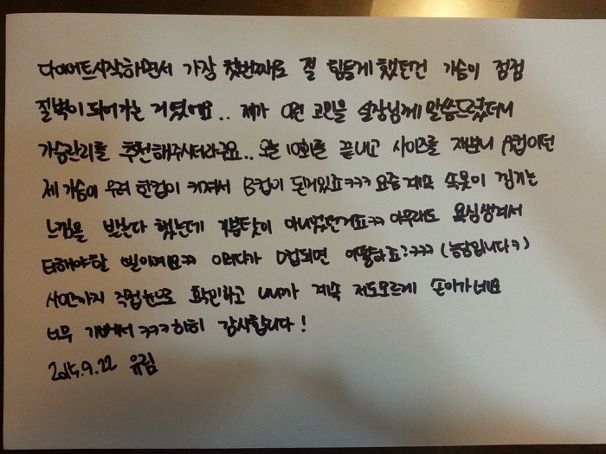 다이어트시작하면서 가장 첫번째로 절 힘들게 했던건 가슴이 점점
절벽이 되어가는 거였어요.. 제가 이런 고민을 실장님께 말씀드렸더니
가슴관리를 추천해주시더라구요.. 오늘 10회를 끝내고 사이즈를 재보니 A컵이던
제 가슴에 무려 한컵이 커져서 B컵이 된거있죠ㅋㅋㅋ 요즘계속 속옷이 낑기는
느낌을 받는다 했는데 기분탓이 아니었던거죠ㅋㅋ 아무래도 욕심생겨서
더해야할 삘이에요ㅋㅋ 이러다가 D컵되면 어떡하죠?ㅋㅋㅋ (농담입니다ㅋ)
사진까지 직접눈으로 확인하고 나니까 계속 저도모르게 손이가네요
너무 기뻐서 ㅋㅋㅋ히히 감사합니다!
2015.9.22 유림